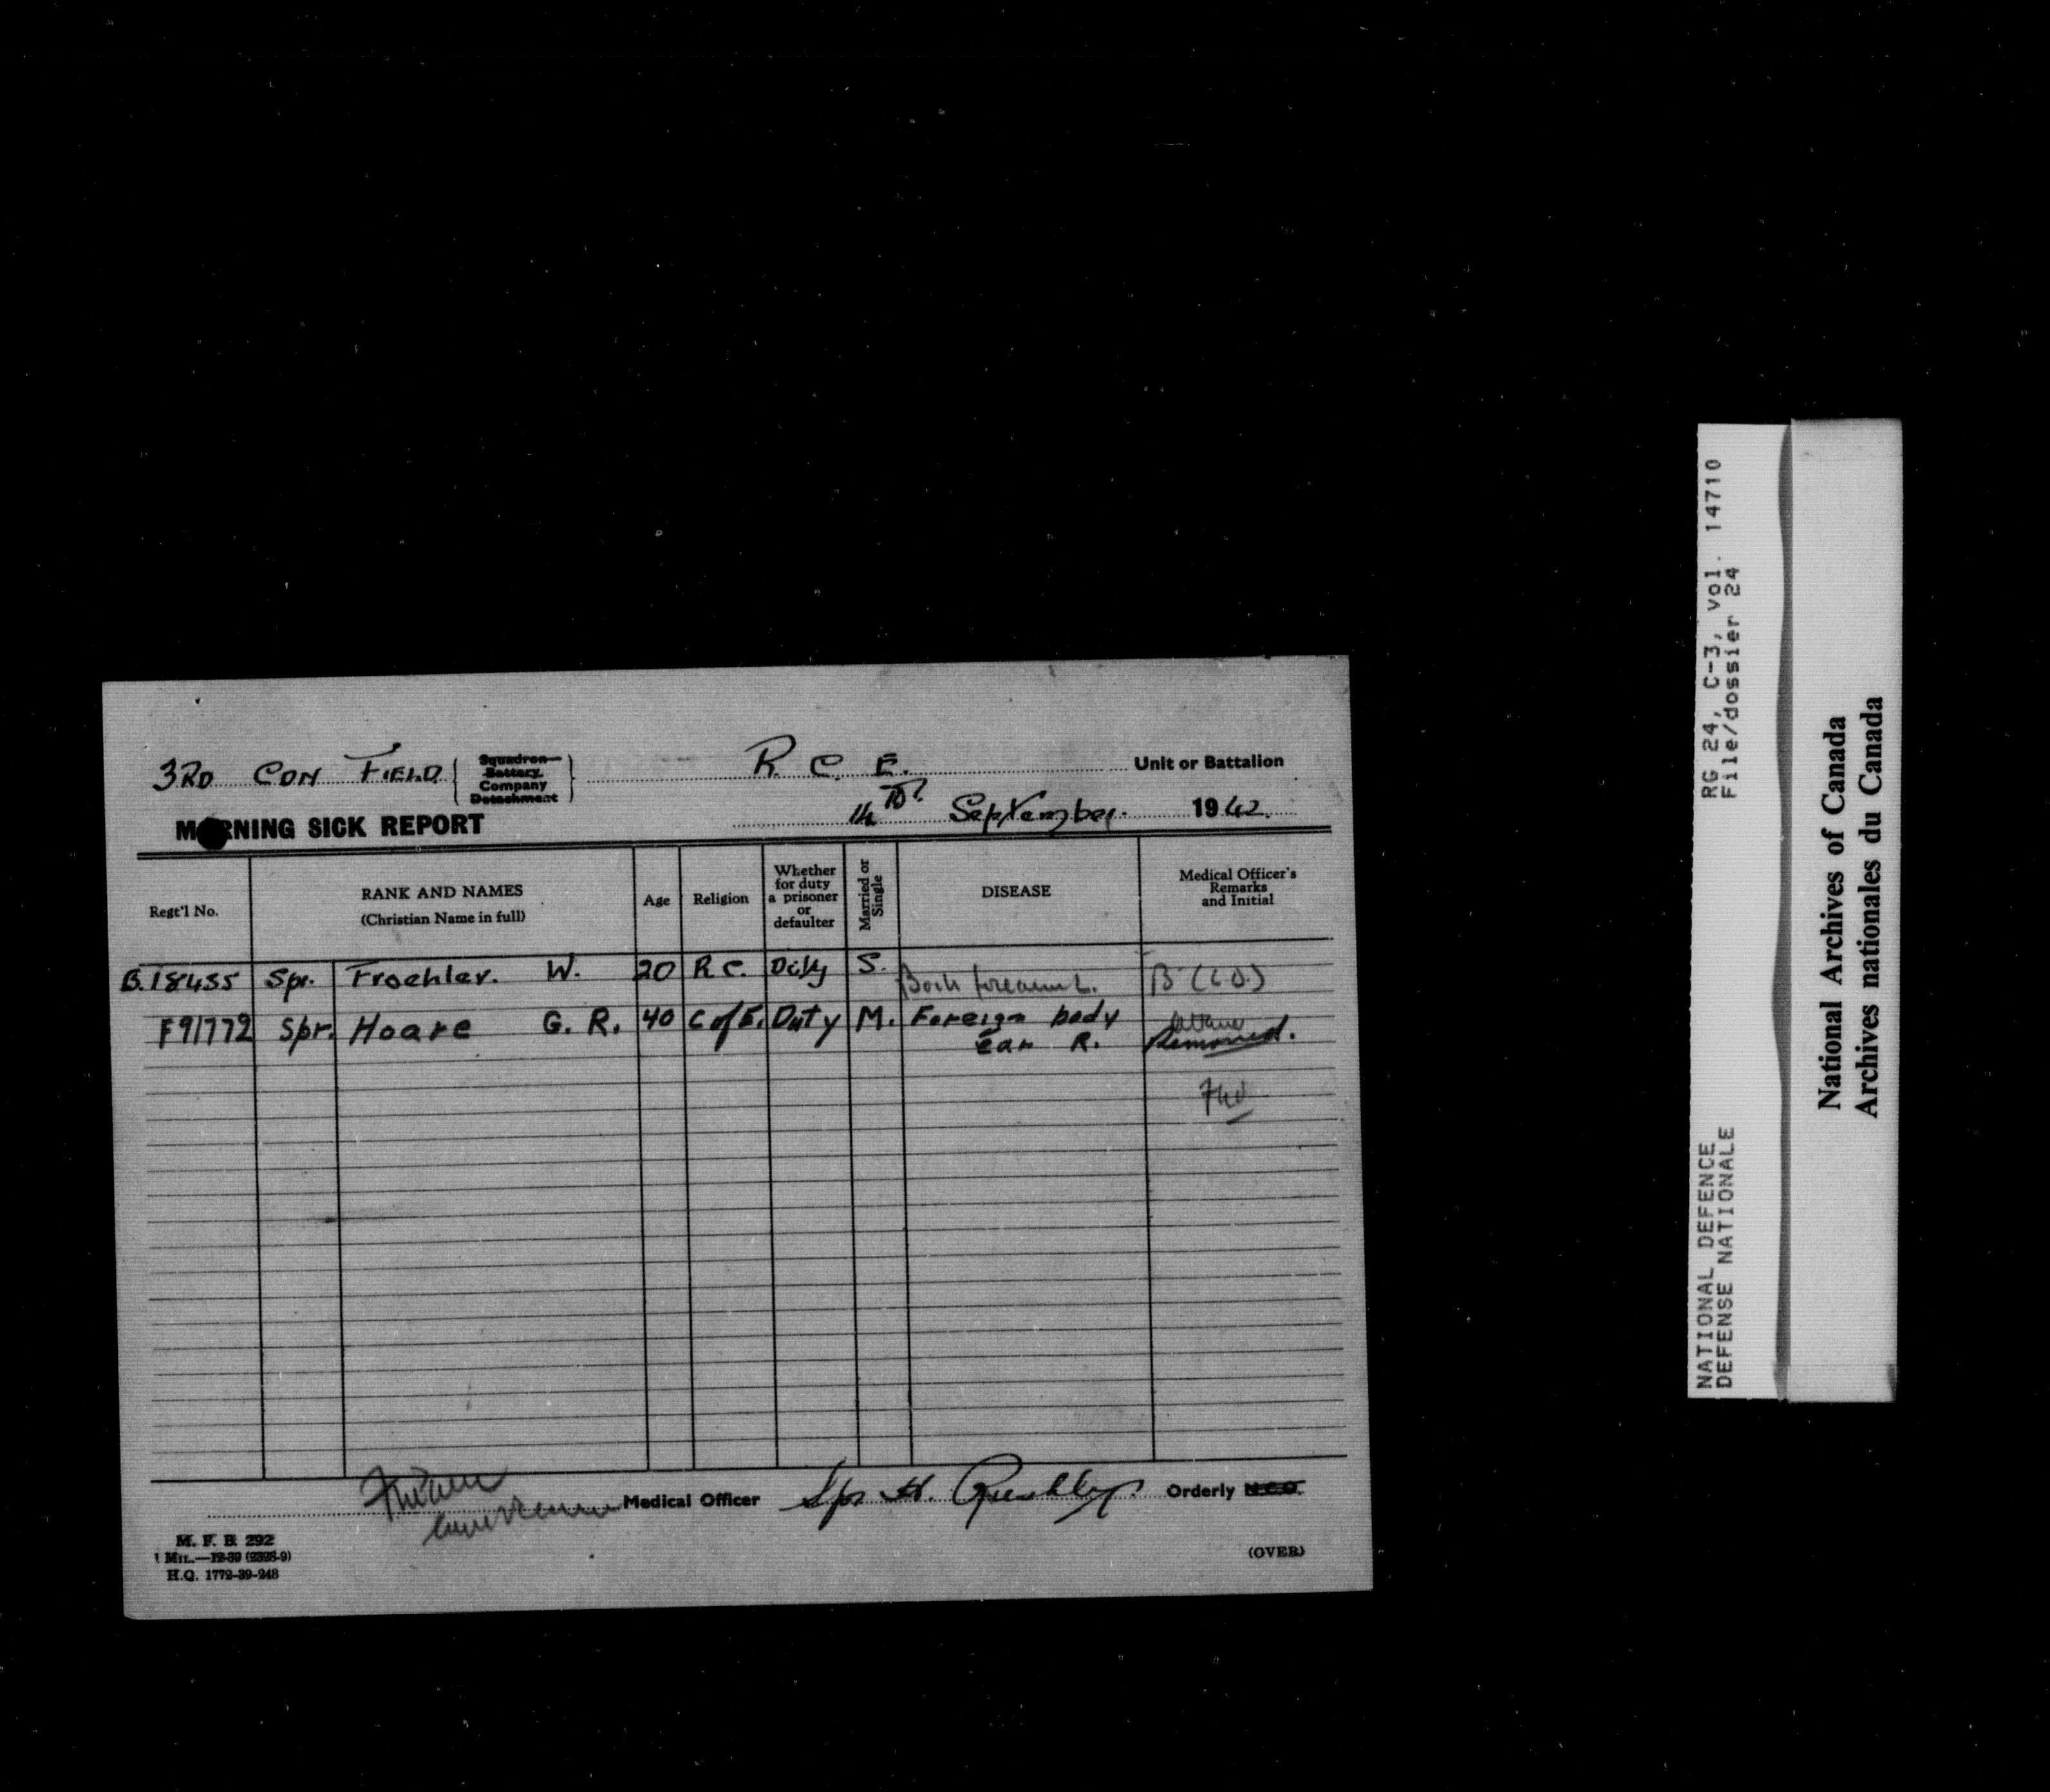 3RD CON FIELD { Squadron Battery Company Detachment } R. C. E. Unit or Battalion
MORNING SICK REPORT 14 September. 1942.
Regt'l No. RANK AND NAMES (Christian Name in full) Age Religion Whether for duty a prisoner or defaulter Married or Single DISEASE Medical Officer's Remarks and Initial
B.18435 Spr. Froehler. W. 20 R.C. Duty S.
F91772 Spr. Hoare G. R. 40 C of E. Duty M. Foreign body
ear R. Removed.
Medical Officer Spr H. Orderly N.C.O.
M. F. B. 292
H.Q. 1772-39-248
(OVER)
RG 24, C-3, vol. 14710
File/dossier 24
NATIONAL DEFENCE
DEFENSE NATIONALE
National Archives of Canada
Archives nationales du Canada